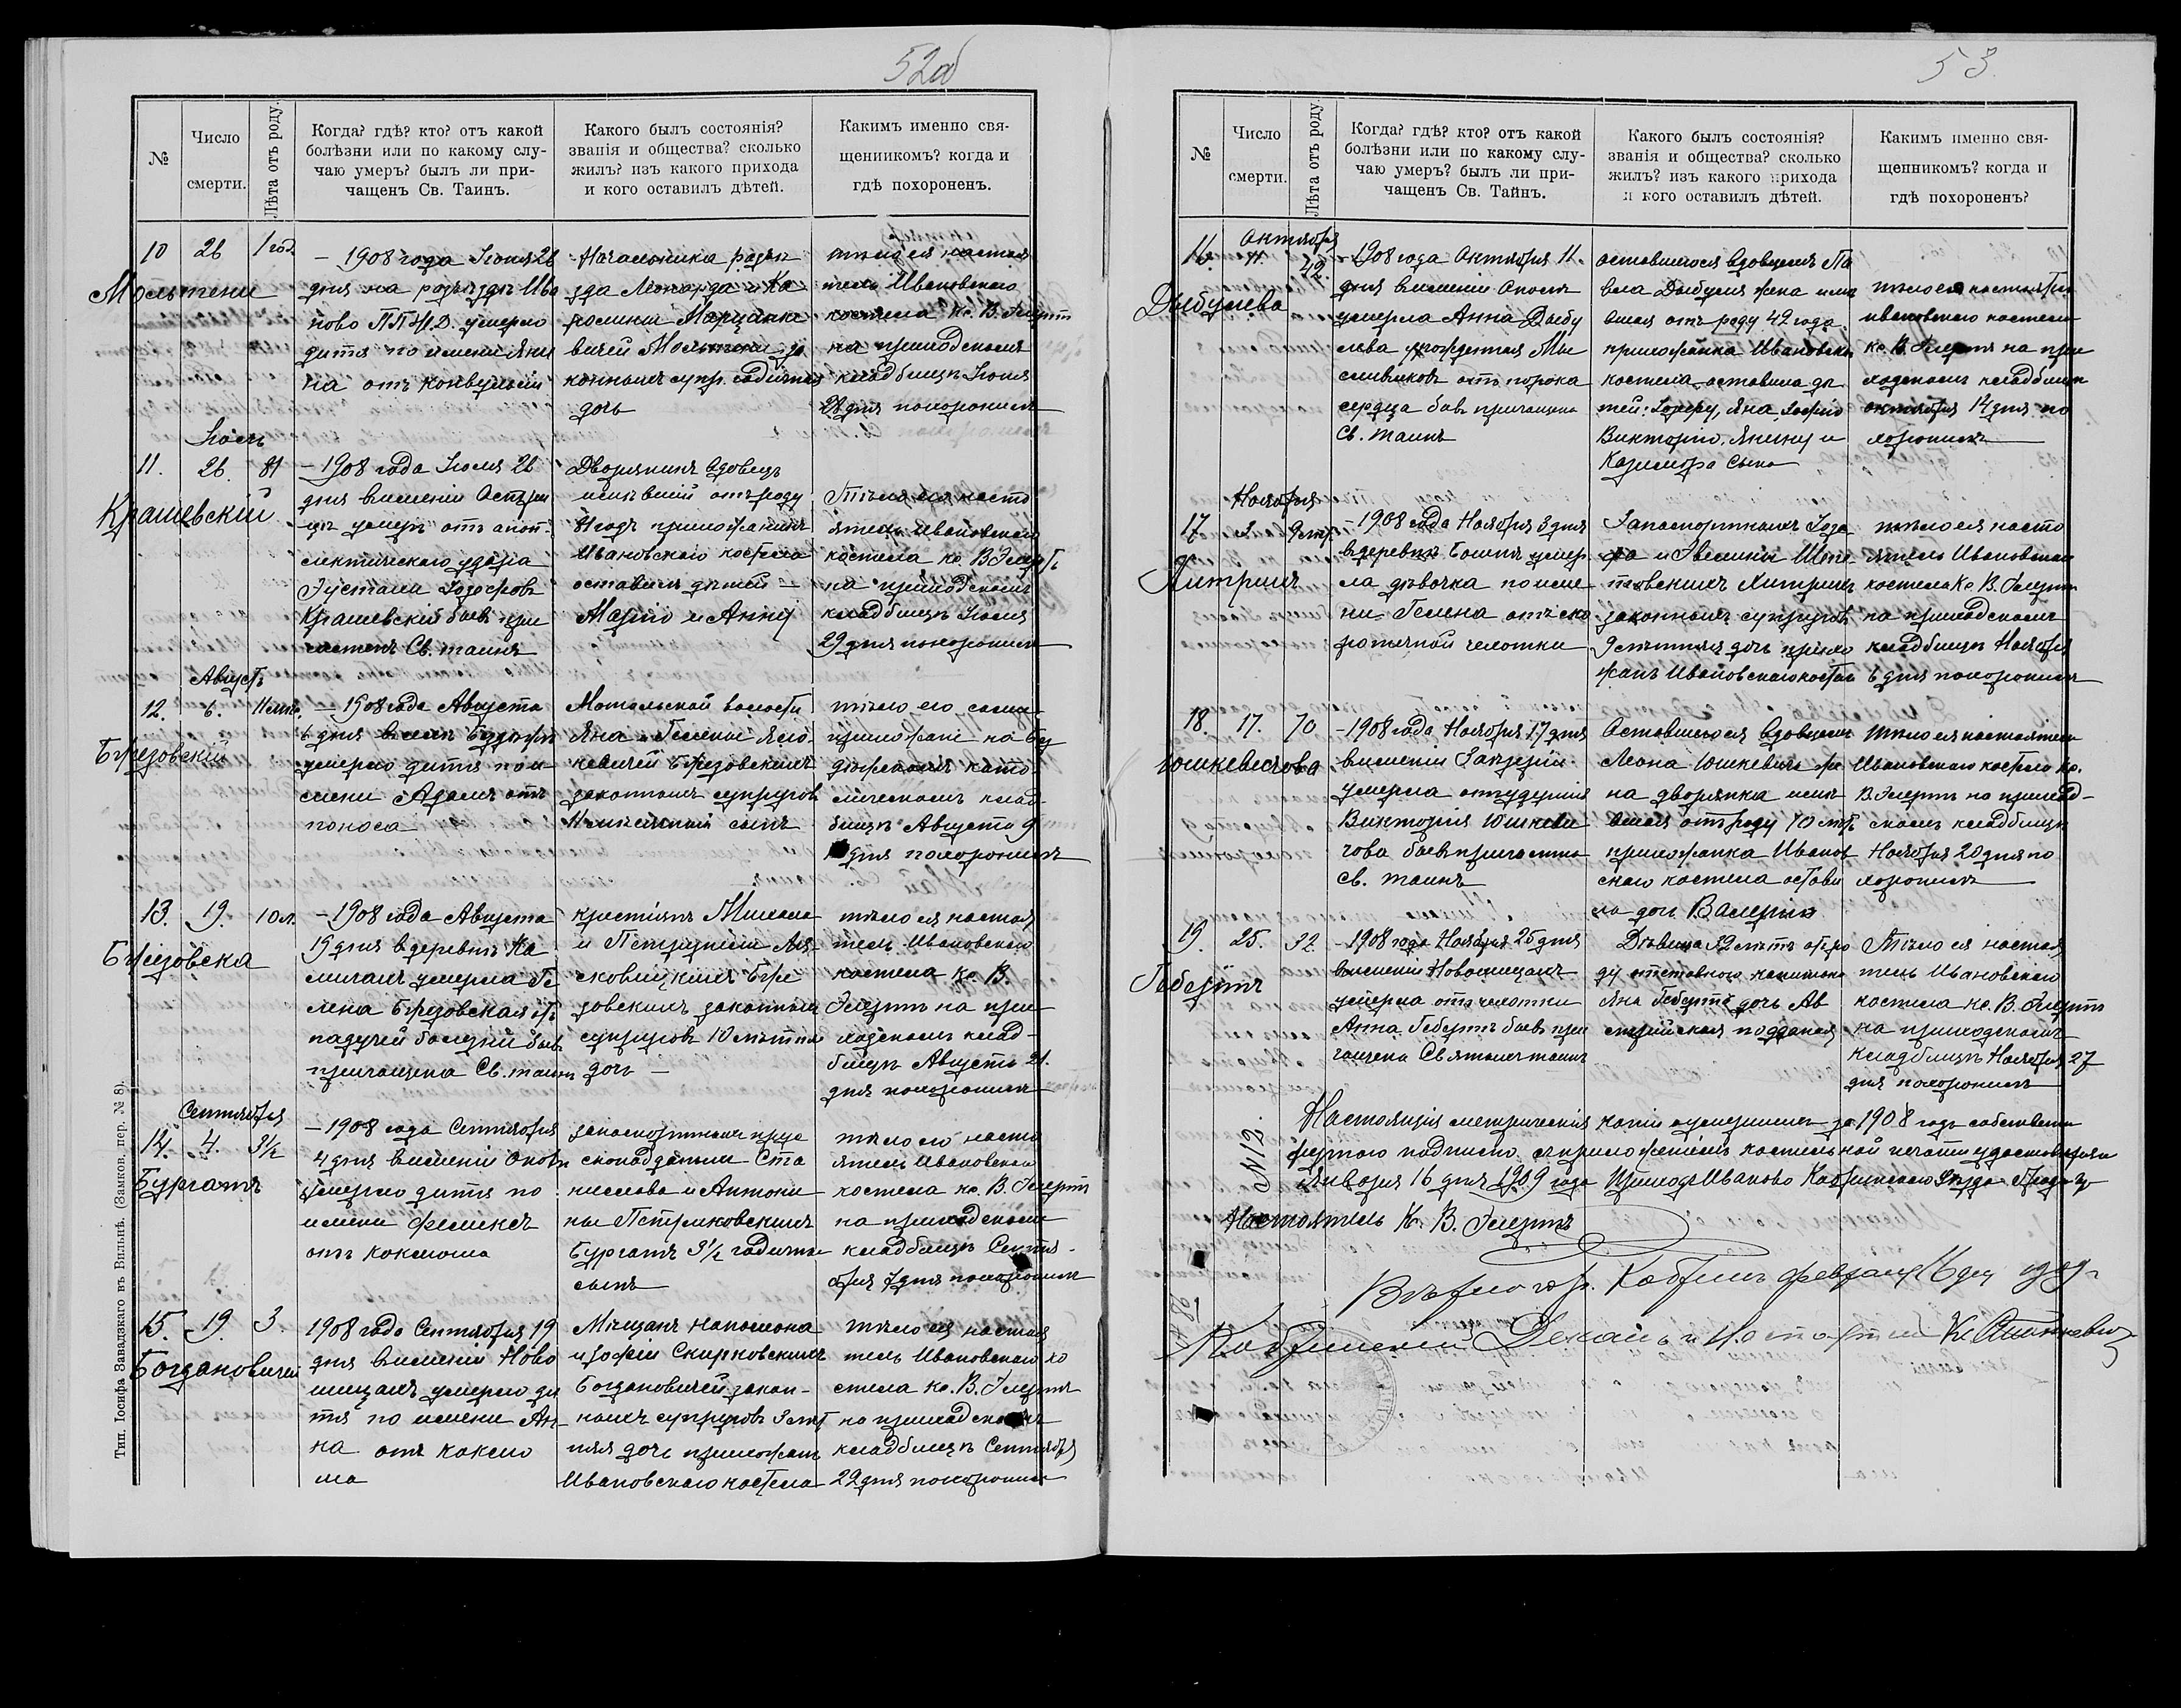 52об
№
Число
смерти.
Лѣта отъ роду.
Когда? гдѣ? кто? отъ какой
болѣзни или по какому слу-
чаю умеръ? былъ ли при-
чащенъ Св. Таинъ.
Какого былъ состоянія?
званія и общества? сколько
жилъ? изъ какого прихода
и кого оставилъ дѣтей.
Какимъ именно свя-
щенникомъ? когда и
гдѣ похороненъ.
10
26
1 год.
Мольтени
– 1908 года Іюня 26
дня на разъѣздѣ Ива
ново П.П.Ж.Д. умерло
дитя по имени Яни
на отъ конвульсіи
Начальника разъѣ
зда Леонарда и Ка
ролины
Мольтени за
конныхъ супр. годичная
дочь
тѣло ея настоя
тель Ивановскаго
костела кс. В. Элертъ
на приходскомъ
кладбищѣ Іюня
28 дня похоронилъ
Іюль
11.
26.
81
Крашевскій
– 1908 года Іюля 26
дня въ имѣніи
умеръ отъ апоп-
лектическаго удара
Іозефовъ
Крашевскій бывъ при
частенъ Св. таинъ
Дворянинъ вдовецъ
имѣвшій отъ роду
81 годъ прихожанинъ
Ивановскаго костела
оставилъ дѣтей –
Марію и Анну
Тѣло его насто
ятель Ивановскаго
костела кс. В Элертъ
на приходскомъ
кладбищѣ Іюля
29 дня похоронилъ
Августъ
12.
6.
11 мѣс.
Бржезовскій
– 1908 года Августа
6 дня
умерло дитя по и
мени Адамъ отъ
поноса
Мотольской волости
Яна и Гелены Яно
кевичей Бржезовскихъ
законныхъ супруговъ
11 мѣсячный сынъ
тѣло его сами
прихожане на
католическомъ клад-
бищѣ Августа 9
дня похоронили
13.
19.
10 л.
Бржезовска
– 1908 года Августа
19 дня въ деревнѣ Ка
умерла Ге
лена Бржезовская отъ
падучей болезни бывъ
причащена Св. таинъ
крестьянъ Михаила
и Петрунели Ля
сковицкихъ Брже
зовскихъ законныхъ
супруговъ 10 лѣтняя
дочь –
тѣло ея настоя
тель Ивановскаго
костела кс. В.
Элертъ на при
ходскомъ клад-
бищѣ Августа 21.
дня похоронилъ
Сентября
14.
4.
3½
Бургатъ
– 1908 года Сентября
4 дня въ имѣніи Опол
умерло дитя по
имени Феликсъ
отъ коклюша
запаспортныхъ прус
скоподданыхъ Ста
нислава и Антони
ны Петриковскихъ
Бургатъ 3½ годичный
сынъ
тѣло его насто
ятель Ивановскаго
костела кс. В. Элертъ
на приходскомъ
кладбищѣ Сентя-
бря 7 дня похоронилъ
15.
19.
3.
Богдановичей
1908 года Сентября 19
дня въ имѣніи Ново
умерло ди
тя по имени Ан
на отъ коклю
ша
Мѣщанъ Наполеона
и Зофіи Скирковскихъ
Богдановичей закон-
ныхъ супруговъ 3 лѣт
няя дочь прихожанъ
Ивановскаго костела
тѣло ея настоя
тель Ивановскаго ко
стела кс. В. Элертъ
на приходскомъ
кладбищѣ Сентября
22 дня похоронилъ
Тип. Іосифа Завадзкаго въ Вильнѣ. (Замков. пер. № 8).
53
№
Число
смерти.
Лѣта отъ роду.
Когда? гдѣ? кто? отъ какой
болѣзни или по какому слу-
чаю умеръ? былъ ли при-
чащенъ Св. Тайнъ.
Какого былъ состоянія?
званія и общества? сколько
жилъ? изъ какого прихода
и кого оставилъ дѣтей.
Какимъ именно свя-
щенникомъ? когда и
гдѣ похороненъ?
Октября
16.
11.
42.
Дыбулева
– 1908 года Октября 11-
дня въ имѣніи Ополѣ
умерла Анна Дыбу
лева урожденная Мы
сливковъ отъ порока
сердца бывъ причащена
Св. таинъ
оставшагося вдовцемъ Па
вла Дыбуля жена имѣ
вшая отъ роду 42 года
прихожанка Ивановска
костела оставила дѣ
тей: Іозефу, Яна, Зофію
Викторію, Янину и
Казимира сына
тѣло ея настоятель
Ивановскаго костела
кс. В. Элертъ на при
ходскомъ кладбищѣ
октября 14 дня по
хоронилъ
Ноября
17.
3.
9 лѣт.
Хитрикъ
– 1908 года Ноября 3 дня
въ деревнѣ умер
ла дѣвочка по име
ни Гелена отъ ско
ротечной чехотки
Запаспортныхъ Іозе
фа и Эвелины Шпа
ковскихъ Хитрикъ
законныхъ супруговъ
9 лѣтняя дочь прихо
жанъ Ивановскаго костел
тѣло ея насто
ятель Ивановскаго
костела кс. В. Элертъ
на приходскомъ
кладбищѣ Ноября
6 дня похоронилъ
18.
17.
70
Юшкевичова
– 1908 года Ноября 17 дня
въ имѣніи
умерла
Викторія Юшкеви
чова бывъ причастна
св. таинъ
Оставшагося вдовцемъ
Леона Юшкевича же
на дворянка имѣ
вшая отъ роду 70 лѣтъ
прихожанка Иванов
скаго костела остави
ла дочь Валерію
тѣло ея настоятель
Ивановскаго костела кс.
В. Элертъ на приход-
скомъ кладбищѣ
Ноября 20 дня по
хоронилъ
19.
25.
32.
Гебертъ
– 1908 года Ноября 25 дня
въ имѣніи
умерла отъ чехотки
Анна Гебертъ бывъ при
чащена Святыхъ таинъ
Дѣвица 32 лѣтъ отъ ро
ду отставного капитана
Яна Геберта дочь Ав
стрійская подданая
Тѣло ея настоя
тель Ивановскаго
костела кс. В. Элертъ
на приходскомъ
кладбищѣ Ноября 27
дня похоронилъ
№ 12.
Настоящія метрическія копіи о умершихъ за 1908 годъ собственно
ручною подписью съ приложеніемъ костельной печати удостовѣряю
Января 16 дня 1909 года Приходъ Иваново Кобринскаго уѣзда
Настоятель Кс. В. Элертъ
Вѣрно гор. Кобринъ Февраля 16 дня 1909 г.
Кобринскій Деканъ и Настоятель Кс.